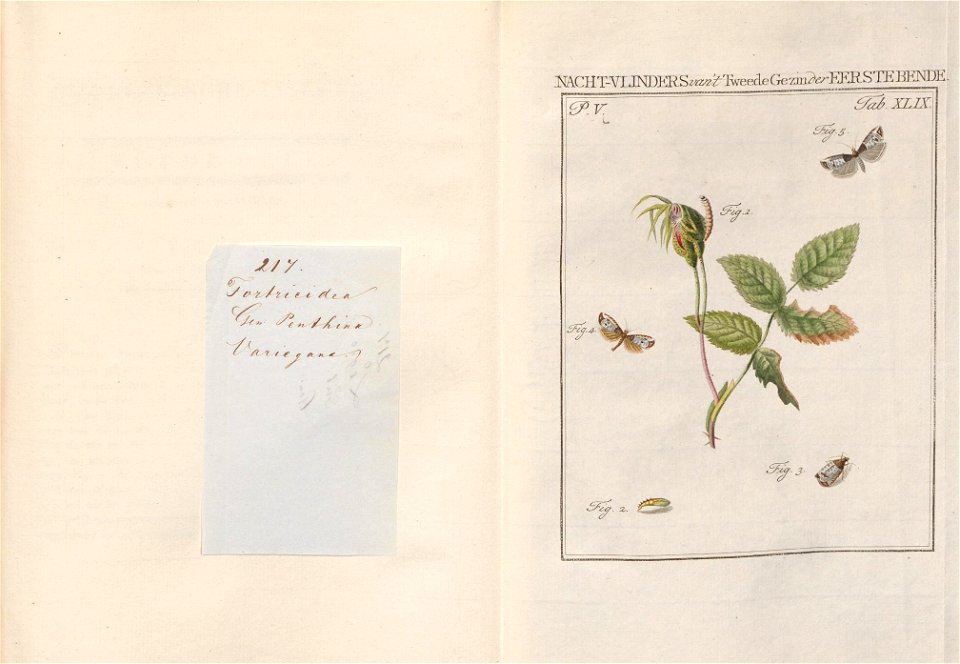 217.
Tortricidea
Gen. Penthina
Variegana
NACHT-VLINDERS van't Tweede Gezin der EERSTE BENDE.
P. V.
Tab. XLIX.
Fig. 5.
Fig. 1.
Fig. 4.
Fig. 3.
Fig. 2.